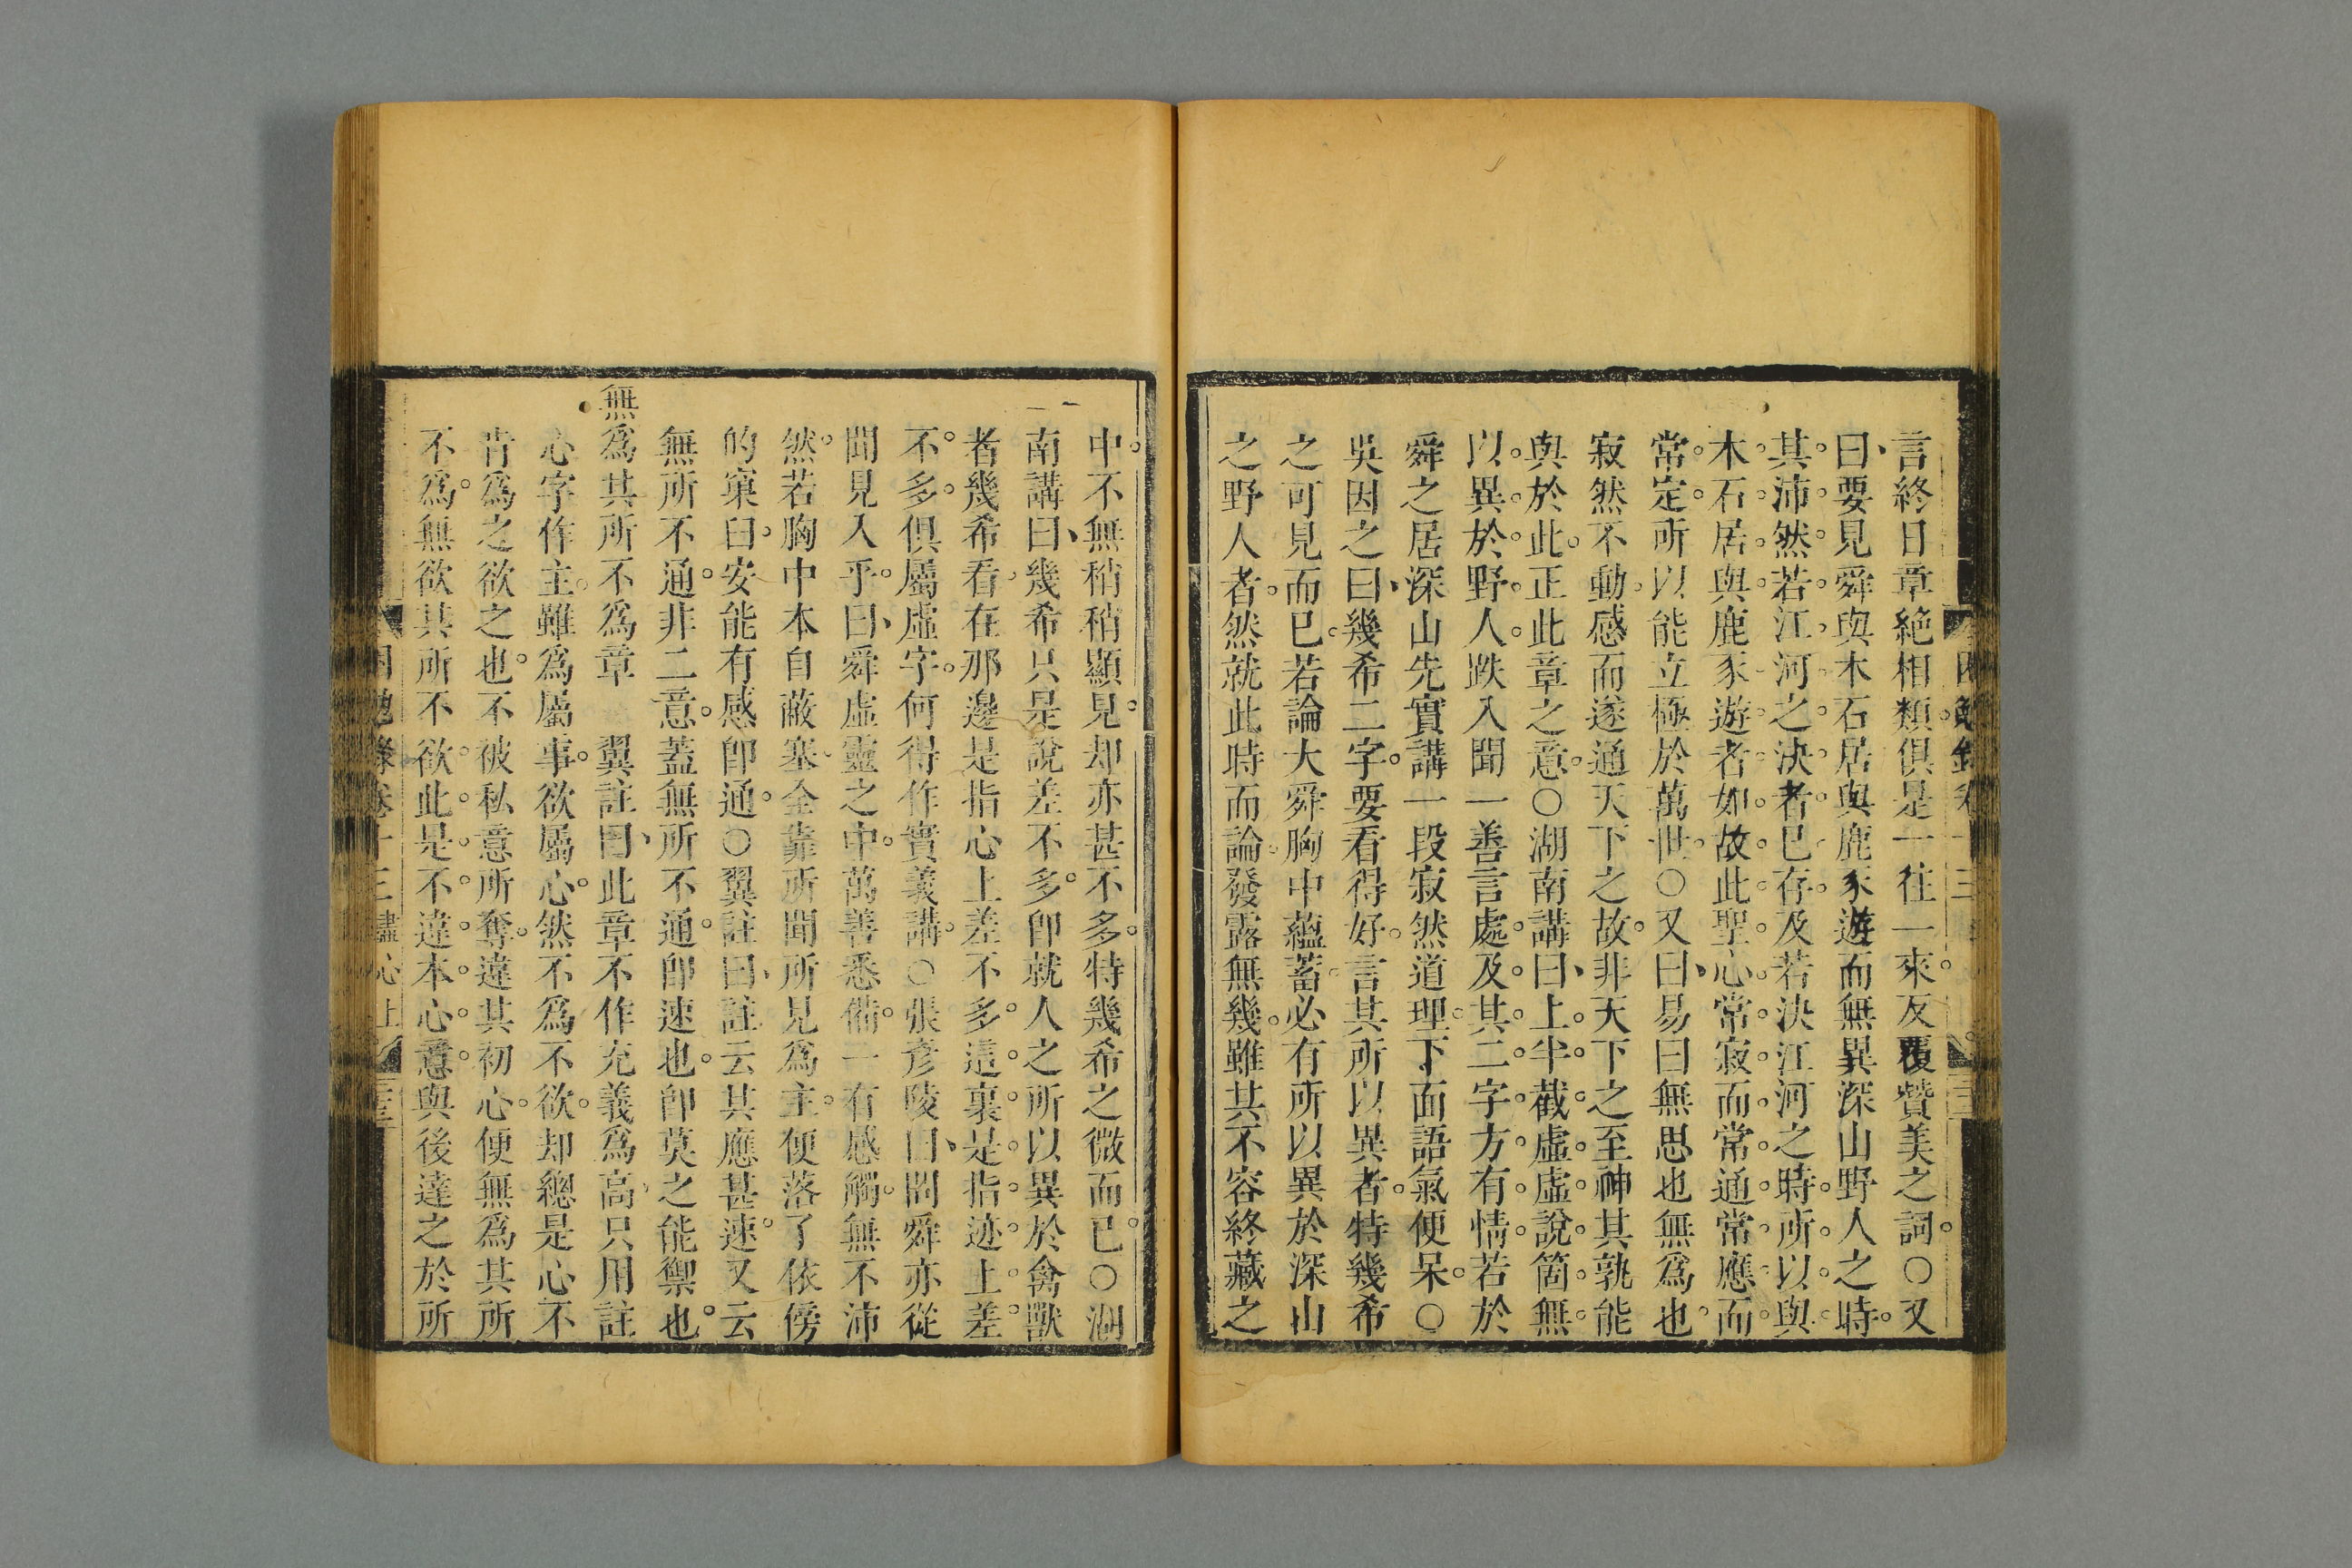 言終日章絶相類俱是一往一來反覆贊美之詞○又
曰要見舜與木石居與鹿豕遊而無異深山野人之時
其沛然若江河之決者已存及若決江河之時所以與
木石居與鹿豕遊者如故此聖心常寂而常通常應而
常定所以能立極於萬世○又曰易曰無思也無爲也
寂然不動感而遂通天下之故非天下之至神其孰能
與於此正此章之意○湖南講曰上半截虛虛說箇無
以異於野人跌入聞一善言處及其二字方有情若於
舜之居深山先實講一段寂然道理下面語氣便呆○
吳因之曰幾希二字要看得好言其所以異者特幾希
之可見而已若論大舜胸中蘊蓄必有所以異於深山
之野人者然就此時而論發露無幾雖其不容終藏之
中不無稍稍顯見却亦甚不多特幾希之微而已○湖
南講曰幾希只是說差不多卽就人之所以異於禽獸
者幾希看在那邊是指心上差不多這裏是指迹上差
不多俱屬虛字何得作實義講○張彥陵曰問舜亦從
聞見入乎曰舜虛靈之中萬善悉備一有感觸無不沛
然若胸中本自蔽塞全靠所聞所見爲主便落了依傍
的窠臼安能有感卽通○翼註曰註云其應甚速又云
無所不通非二意蓋無所不通卽速也卽莫之能禦也
無爲其所不爲章 翼註曰此章不作充義爲高只用註
心字作主雖爲屬事欲屬心然不爲不欲却總是心不
肯爲之欲之也不被私意所奪違其初心便無爲其所
不爲無欲其所不欲此是不違本心意與後達之於所
困勉錄卷十三盡心上